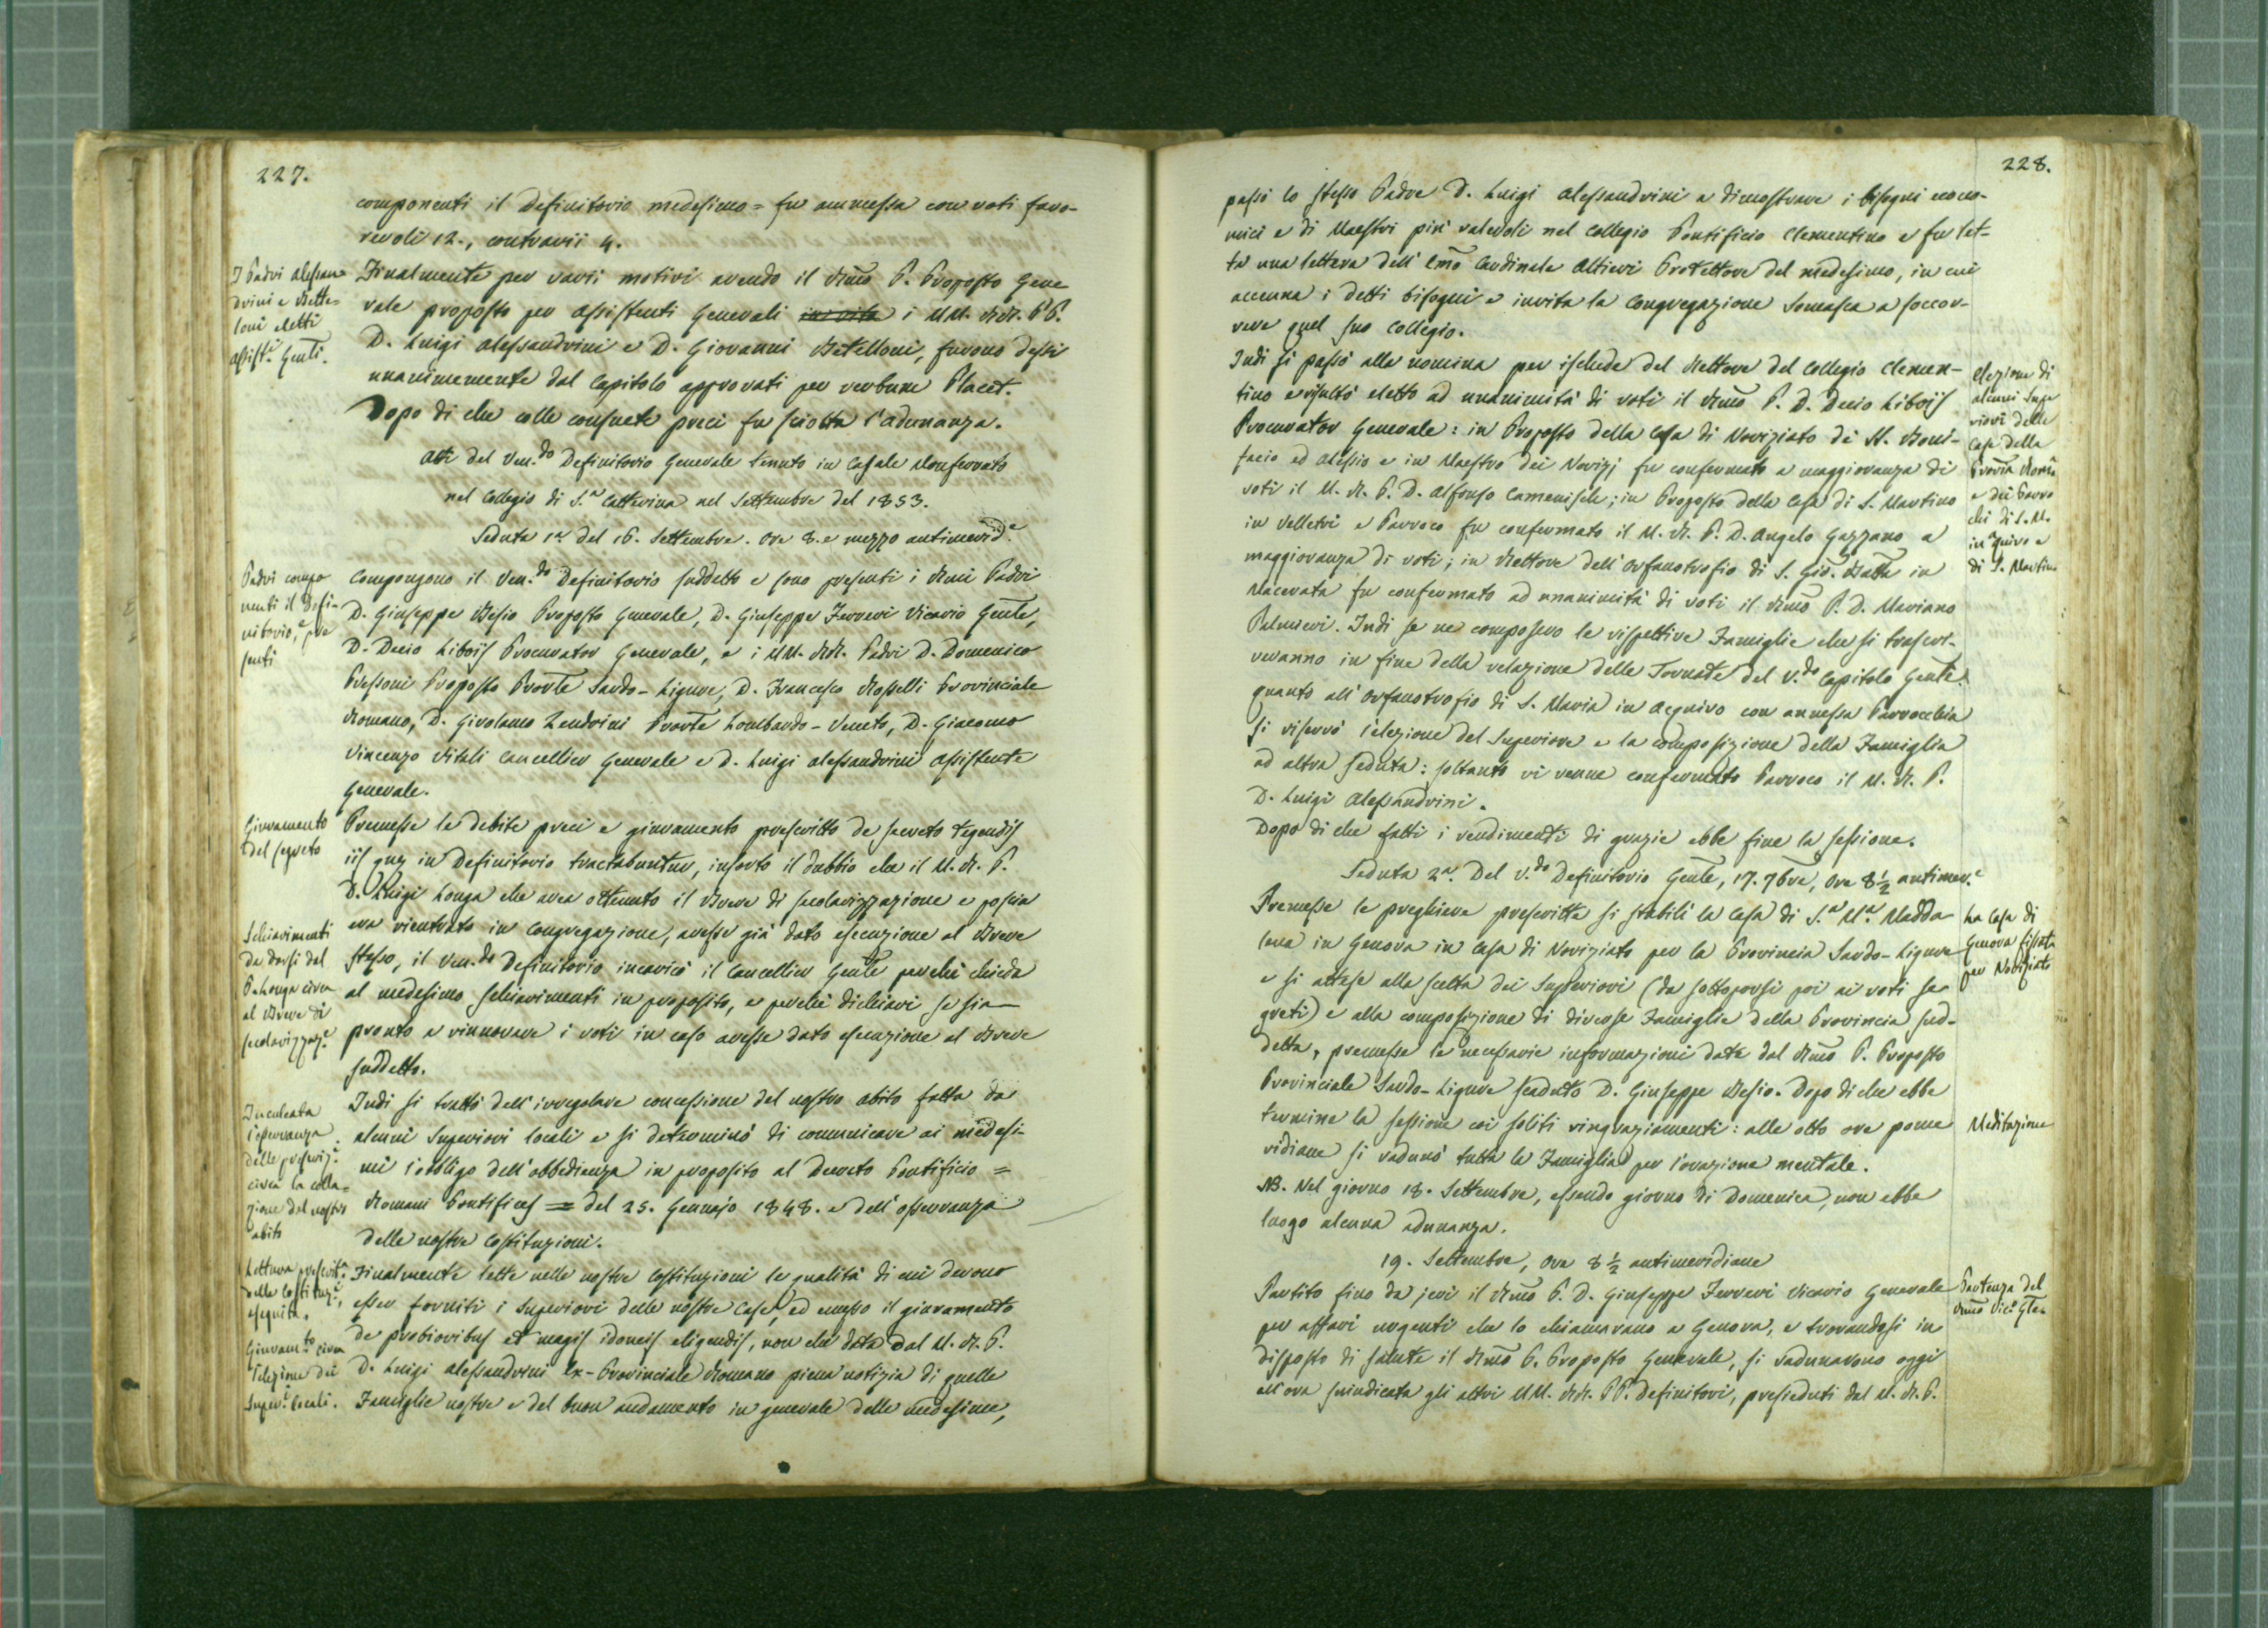 227.
componenti il Definitorio medesimo = fu ammessa con voti favo-
revoli 12., contrarii 4.
I Padri Alessan
drini e Bette=
loni eletti
Assist.ⁱ Genli.
Finalmente per varii motivi avendo il Rmo P. Proposto Gene
rale proposto per Assistenti Generali in vita i MM. RR. PP.
D. Luigi Alessandrini e D. Giovanni Betelloni, furono dessi
unanimemente dal Capitolo approvati per verbum Placet.
Dopo di che colle consuete preci fu sciolta l'adunanza.
Atti del Ven.do Definitorio Generale tenuto in Casale Monferrato
nel Collegio di S.a Catterina nel Settembre del 1853.
Seduta 1a del 16. Settembre. Ore 8. e mezzo antimerid.e
Padri compo
nenti il Defi-
nitorio, e pre
senti
Compongono il Ven.do Definitorio suddetto e sono presenti i Rmi Padri
D. Giuseppe Besio Proposto Generale, D. Giuseppe Ferreri Vicario Genle,
D. Decio Libois Procurator Generale, e i MM. RR. Padri D. Domenico
Pressoni Proposto Provle Sardo-Ligure, D. Francesco Rosselli Provinciale
Romano, D. Girolamo Zendrini Provle Lombardo-Veneto, D. Giacomo
Vincenzo Vitali Cancellier Generale e D. Luigi Alessandrini Assistente
Generale.
Giuramento
del segreto
Premesse le debite preci e giuramento prescritto de secreto tegendis
iis quæ in Definitorio tractabuntur, insorto il dubbio che il M. R. P.
D. Luigi Longa che avea ottenuto il Breve di secolarizzazione e poscia
era rientrato in Congregazione, avesse già dato esecuzione al Breve
stesso, il Ven.do Definitorio incaricò il Cancellier Genle perchè chieda
al medesimo schiarimenti in proposito, e perchè dichiari se sia
pronto a rinnovare i voti in caso avesse dato esecuzione al Breve
suddetto.
Schiarimenti
da darsi dal
P. Longa circa
al Breve di
secolarizzaz.e
Inculcata
l'osservanza
delle prescriz.i
circa la colla=
zione del nostro
abito
Indi si trattò dell'irregolare concessione del nostro abito fatta da
alcuni Superiori locali e si determinò di comunicare ai medesi-
mi l'obbligo dell'obbedienza in proposito al Decreto Pontificio =
Romani Pontifices = del 25. Gennajo 1848. e dell'osservanza
delle nostre Costituzioni.
Lettura prescrit.a
delle Costituz.i,
eseguita.
Giuram.to circa
l'elezione dei
Super.i locali.
Finalmente lette nelle nostre Costituzioni le qualità di cui devono
esser forniti i Superiori delle nostre Case, ed emesso il giuramento
de probioribus et magis idoneis eligendis, non che data dal M. R. P.
D. Luigi Alessandrini Ex-Provinciale Romano piena notizia di quelle
Famiglie nostre e del buon andamento in generale delle medesime,
228.
passò lo stesso Padre D. Luigi Alessandrini a dimostrare i bisogni econo-
mici e di Maestri più valevoli nel Collegio Pontificio Clementino e fu let-
ta una lettera dell'Emo Cardinale Altieri Protettore del medesimo, in cui
accenna i detti bisogni e invita la Congregazione Somasca a soccor-
rere quel suo Collegio.
Indi si passò alla nomina per ischede del Rettore del Collegio Clemen-
tino e risultò eletto ad unanimità di voti il Rmo P. D. Decio Libois
Procurator Generale: in Proposto della Casa di Noviziato de' SS. Boni-
facio ed Alessio e in Maestro dei Novizj fu confermato a maggioranza di
voti il M. R. P. D. Alfonso Camenisch; in Proposto della Casa di S. Martino
in Velletri e Parroco fu confermato il M. R. P. D. Angelo Gazzano a
maggioranza di voti; in Rettore dell'Orfanotrofio di S. Gio. Batta in
Macerata fu confermato ad unanimità di voti il Rmo P. D. Mariano
Palmieri. Indi se ne composero le rispettive Famiglie che si trascri-
veranno in fine della relazione delle Tornate del V.do Capitolo Genle.
quanto all'Orfanotrofio di S. Maria in Acquiro con annessa Parrocchia
si riservò l'elezione del Superiore e la composizione della Famiglia
ad altra seduta: soltanto vi venne confermato Parroco il M. R. P.
D. Luigi Alessandrini.
Dopo di che fatti i rendimenti di grazie ebbe fine la sessione.
Elezione di
alcuni Supe
riori delle
Case della
Provia Roma
e dei Parro
chi di S. M.
in Aquiro e
di S. Martino
Seduta 2a. Del V.do Definitorio Genle, 17. 7bre, Ore 8½ antimer.e
Premesse le preghiere prescritte si stabilì la Casa di S.a M.a Madda
lena in Genova in Casa di Noviziato per la Provincia Sardo-Ligure
e si attese alla scelta dei Superiori (da sottoporsi poi ai voti se
greti) e alla composizione di diverse Famiglie della Provincia sud-
detta, premesse le necessarie informazioni date dal Rmo P. Proposto
Provinciale Sardo-Ligure scaduto D. Giuseppe Besio. Dopo di che ebbe
termine la sessione coi soliti ringraziamenti: alle otto ore pome
ridiane si radunò tutta la Famiglia per l'orazione mentale.
NB. Nel giorno 18. Settembre, essendo giorno di Domenica, non ebbe
luogo alcuna adunanza.
La Casa di
Genova fissata
per Noviziato
Meditazione
19. Settembre, Ore 8½ antimeridiane
Partito fino da jeri il Rmo P. D. Giuseppe Ferreri Vicario Generale
per affari urgenti che lo chiamavano a Genova, e trovandosi in
disposto di salute il Rmo P. Proposto Generale, si radunarono oggi
all'ora suindicata gli altri MM. RR. PP. Definitori, presieduti dal M. R. P.
Partenza del
Rmo Vic.o Gle.